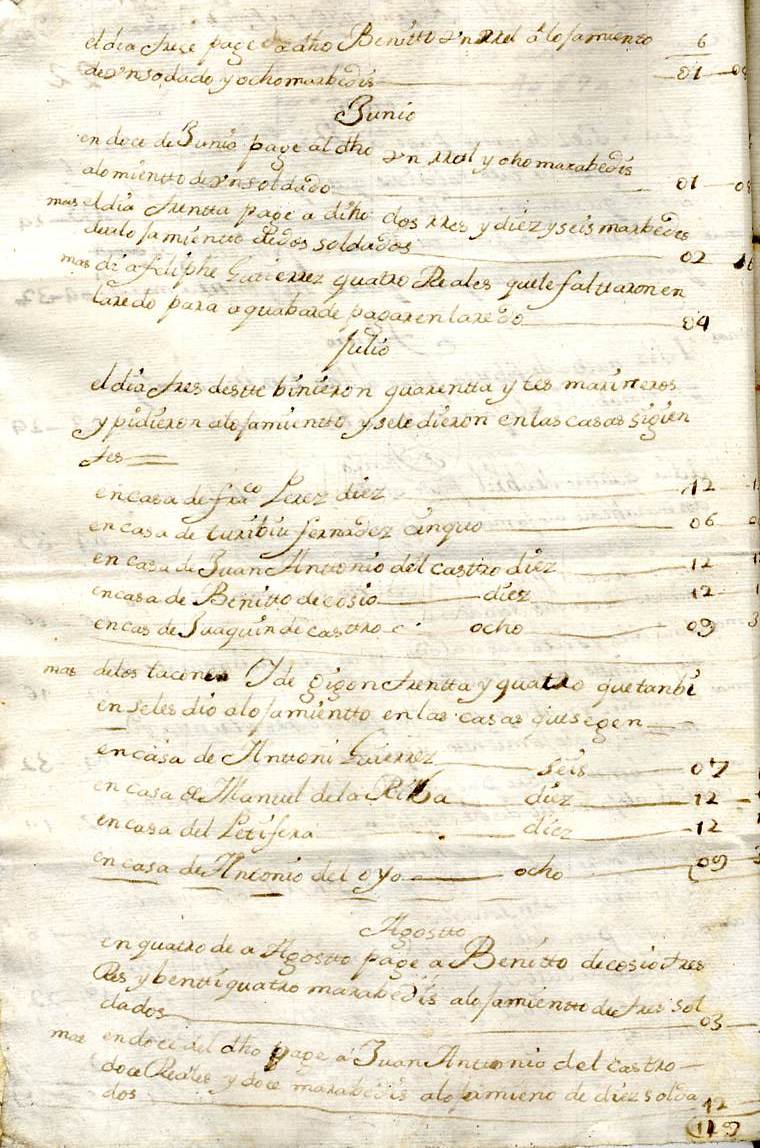 el dia trece page a dho Benitto vn rrel alojamiento 6
de vn sodado y ocho marbedis 01 08
Junio
en doce de Junio page al dho vn rreal y oho marabedis
alomientto de vn soldado 01 08
mas el dia trentta page a diho dos rres y diez y seis marbedis
de alojamiento de dos soldados 02 16
mas di a feliphe Gutierrez quatro Reales que le faltaron en
laredo para aquabar de pagar en laredo 04
Julio
el dia tres deste binieron quarentta y tes marineros
y pidieron alojamientto y se le dieron en las casas sigien
tes
en casa de franco Perez diez 12
en casa de turibiu fernadez cinquo 06
en casa de Juan Anttonio del castro diez 12
en casa de Benitto de cosio diez 12
en cas de Juaquin de casttro ocho 09
mas de los taconen de gigon trentta y quatro que tanbi
en se les dio alojamientto en las casas que segen
en casa de Antoni Gutierrez seis 07
en casa de Manuel de la Riba diez 12
en casa del Petifera diez 12
en casa de Antonio del oyo ocho 09
Agostto
en quatro de a Agostto page a Benitto de cosio tres
Res y bentti quatro marabedis alojamientto de tres sol
dados 03
mas en doce del dho page a Juan Anttonio del castro
doce Reales y doce marabedis alojamieno de diez solda
dos 12
129